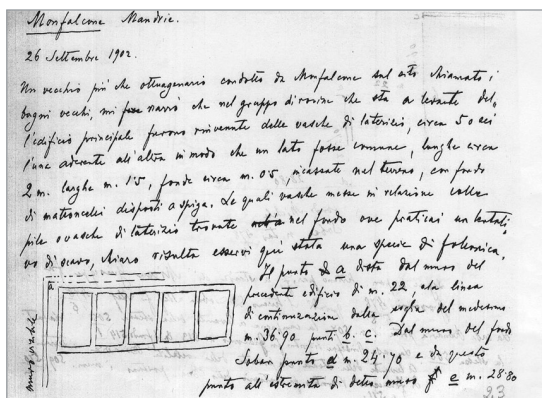 Monfalcone Mandrie.
26 Settembre 1902.
Un vecchio più che ottuagenario condotto da Monfalcone sul sito chiamato, i
bagni vecchi, mi narrò che nel gruppo di rovine che sta a levante del=
l'edificio principale furono rinvenute delle vasche di laterizio, circa 5 o sei
l'una aderente all'altra in modo che un lato fosse comune, lunghe circa
2 m. larghe m. 1'5, fonde circa m. 0'5, incassate nel terreno, con fondo
di mattoncelli disposti a spiga. Le quali vasche messe in relazione colle
pile o vasche di laterizio trovate nel fondo ove praticai un tentati,
vo di scavo, chiaro risulta esservi qui stata una specie di folonica,
Il punto a dista dal muro del
precedente edificio di m. 22 alla linea
di continuazione dalla soglia del medesimo
m. 36.90 punti b. c. Dal muro del fondo
punto d m. 24.70 e da questo
punto all'estremità di detto muro e m. 28.80
a
23